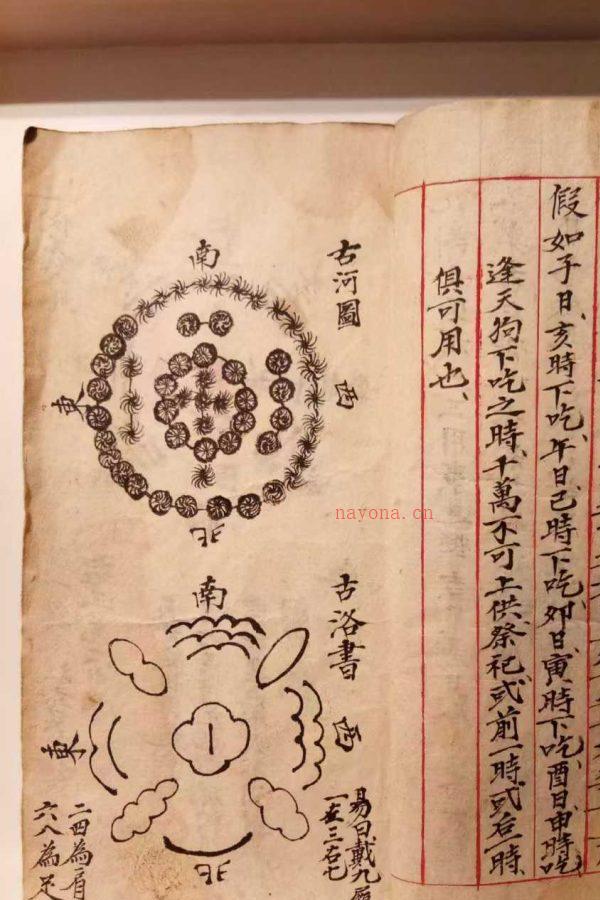 假如子日、亥時下吃、午日、巳時下吃、卯日、寅時下吃、酉日、申時吃
逢天狗下吃之時、千萬不可上供祭祀或前一時或后一時
俱可用也、
古河圖
南
西
東
北
古洛書
南
西
東
北
易曰戴九
一左三右七
二四為肩
六八為足
nayona.cn